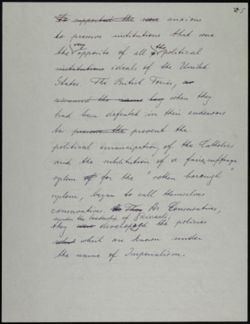 25
~~He supported the~~ anxious
to preserve institutions that were
the very opposite of all the political
~~institutions~~ ideals of the United
States. The British Tories,
~~the same~~ when they
had been defeated in their endeavors
to ~~preserve the~~ prevent the
political emancipation of the Catholics
and the substitution of a fair suffrage
system ~~of~~ for the "rotten borough"
system, began to call themselves
conservatives. ~~The~~ As Conservatives,
under the leadership of Disraeli,
they developed the policies
~~which~~ which are known under
the name of Imperialism.